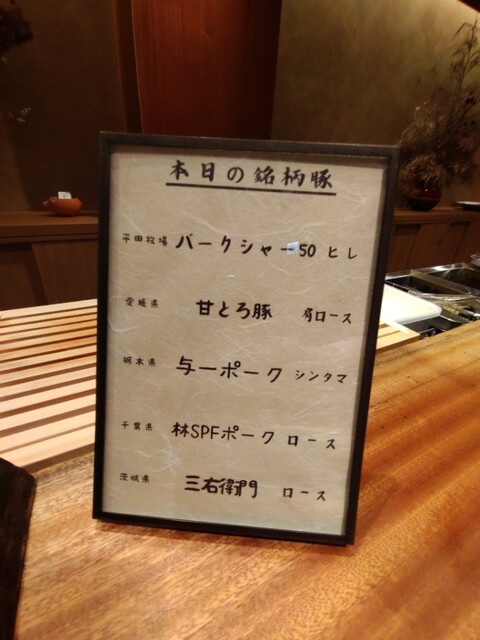 本日の銘柄豚
平田牧場 バークシャー50 ヒレ
愛媛県 甘とろ豚 肩ロース
栃木県 与一ポーク シンタマ
千葉県 林SPFポーク ロース
茨城県 三右衛門 ロース